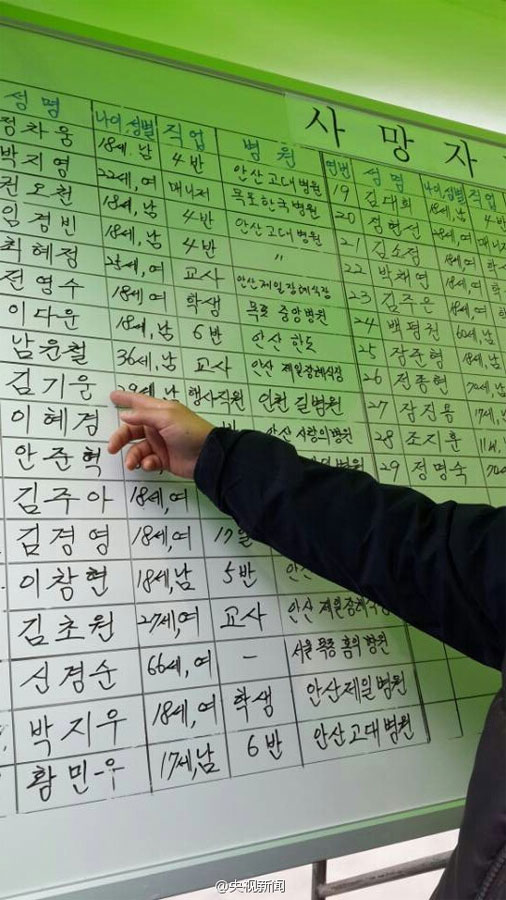 사망자
성명 나이,성별 직업 병원
정차웅 18세.남 4반 안산고대병원
박지영 22세,여 매니저 목포한국병원
권오천 18세,남 4반 안산고대병원
임경빈 18세,남 4반 〃
최혜정 25세,여 교사 안산제일장례식장
전영수 18세,여 학생 목포 중앙병원
이다운 18세,남 6반 안산 한도
남윤철 36세,남 교사 안산 제일장례식장
김기웅 남 행사직원 인천 길병원
이혜경 안산 사랑의병원
안준혁 병원
김주아 18세,여
김경영 18세,여
이창현 18세,남 5반
김초원 27세,여 교사 안산 제일장례식장
신경순 66세,여 –
박지우 18세,여 학생 안산제일병원
황민우 17세,남 6반 안산고대병원
연번 성명 나이,성별 직업
19 김대희 18세,남 4반
20 정현선 28세,여 매니저
21 김소정 18세,여
22 박채연 18세,여
23 김주은 18세,여
24 백평천 60세,남
25 장준형 18세,남
26 전종현 70세,남
27 장진용 17세,남
28 조지훈
29 정명숙
@央视新闻